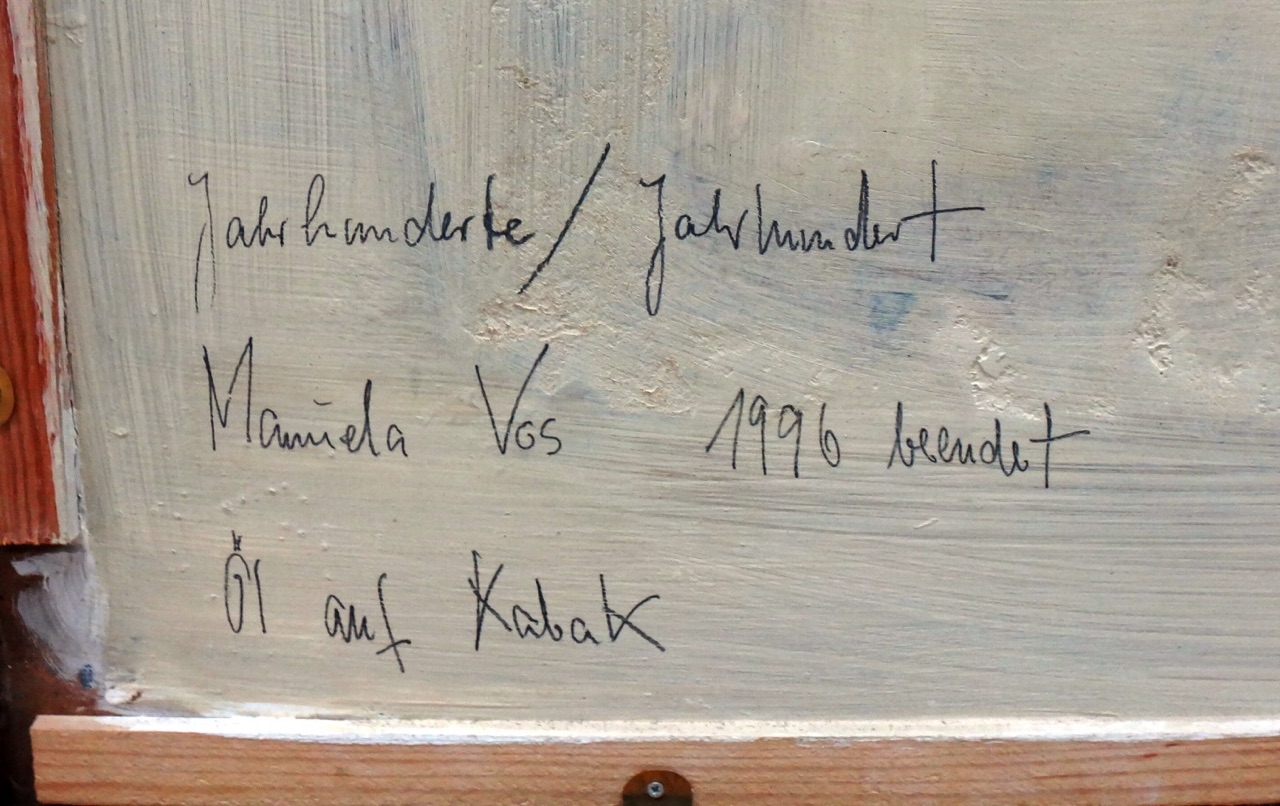 Jahrhunderte / Jahrhundert
Manuela Vos 1996 beendet
Öl auf Kabak